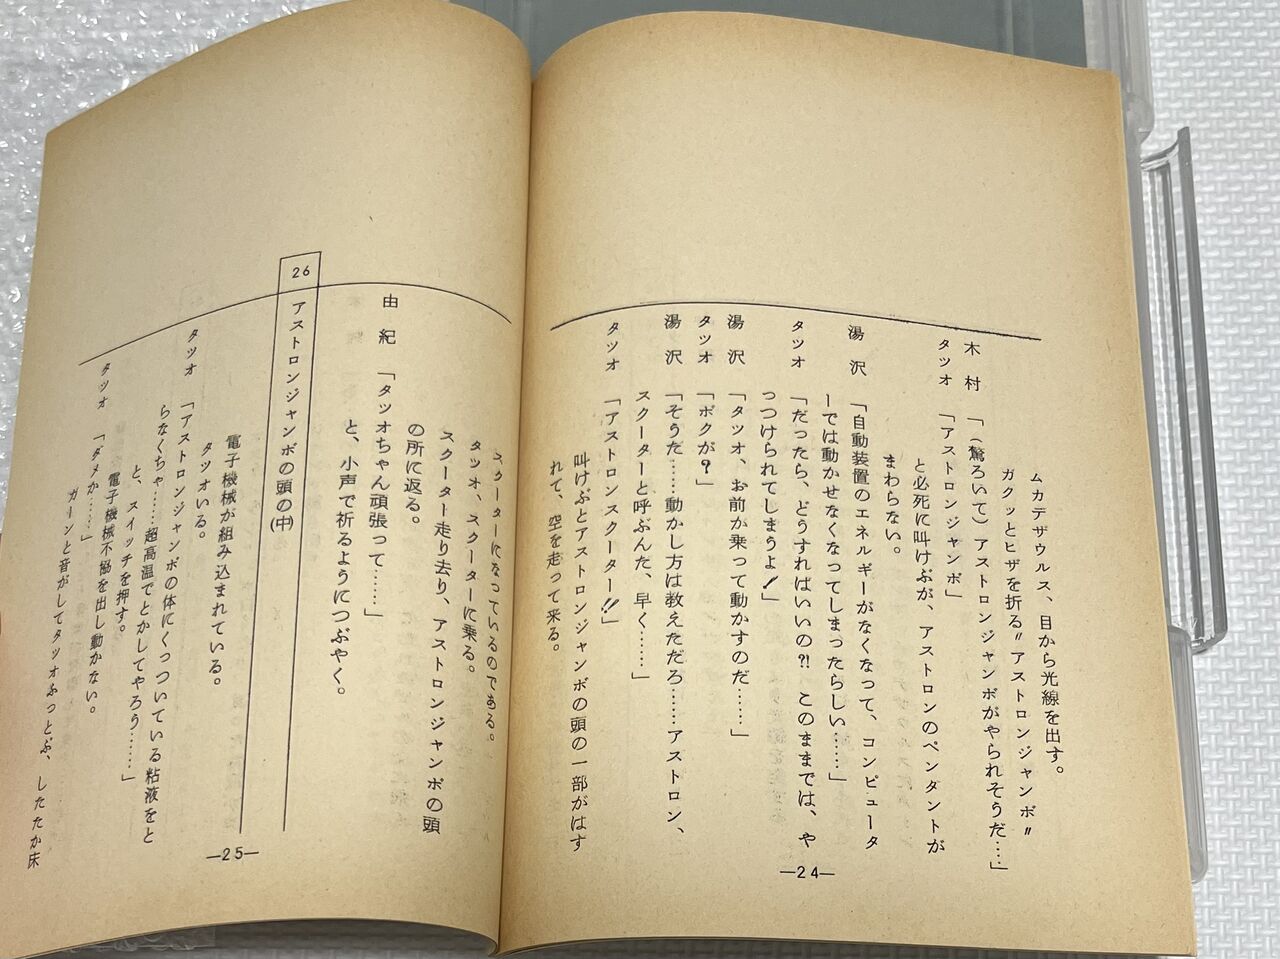 ムカデザウルス、目から光線を出す。
ガクッとヒザを折る〝アストロンジャンボ〟
木村「(驚ろいて)アストロンジャンボがやられそうだ……」
タツオ「アストロンジャンボ」
と必死に叫けぶが、アストロンのペンダントが
まわらない。
湯沢「自動装置のエネルギーがなくなって、コンピュータ
ーでは動かせなくなってしまったらしい……」
タツオ「だったら、どうすればいいの?! このままでは、や
っつけられてしまうよ!」
湯沢「タツオ、お前が乗って動かすのだ……」
タツオ「ボクが?」
湯沢「そうだ……動かし方は教えただろ……アストロン、
スクーターと呼ぶんた、早く……」
タツオ「アストロンスクーター!!」
叫けぶとアストロンジャンボの頭の一部がはず
れて、空を走って来る。
—24—
スクーターになっているのである。
タツオ、スクーターに乗る。
スクーター走り去り、アストロンジャンボの頭
の所に返る。
由紀「タツオちゃん頑張って……」
と、小声で祈るようにつぶやく。
26 アストロンジャンボの頭の(中)
電子機械が組み込まれている。
タツオいる。
タツオ「アストロンジャンボの体にくっついている粘液をと
らなくちゃ……超高温でとかしてやろう……」
と、スイッチを押す。
電子機械不協を出し動かない。
タツオ「ダメか……」
ガーンと音がしてタツオふっとぶ、したたか床
—25—